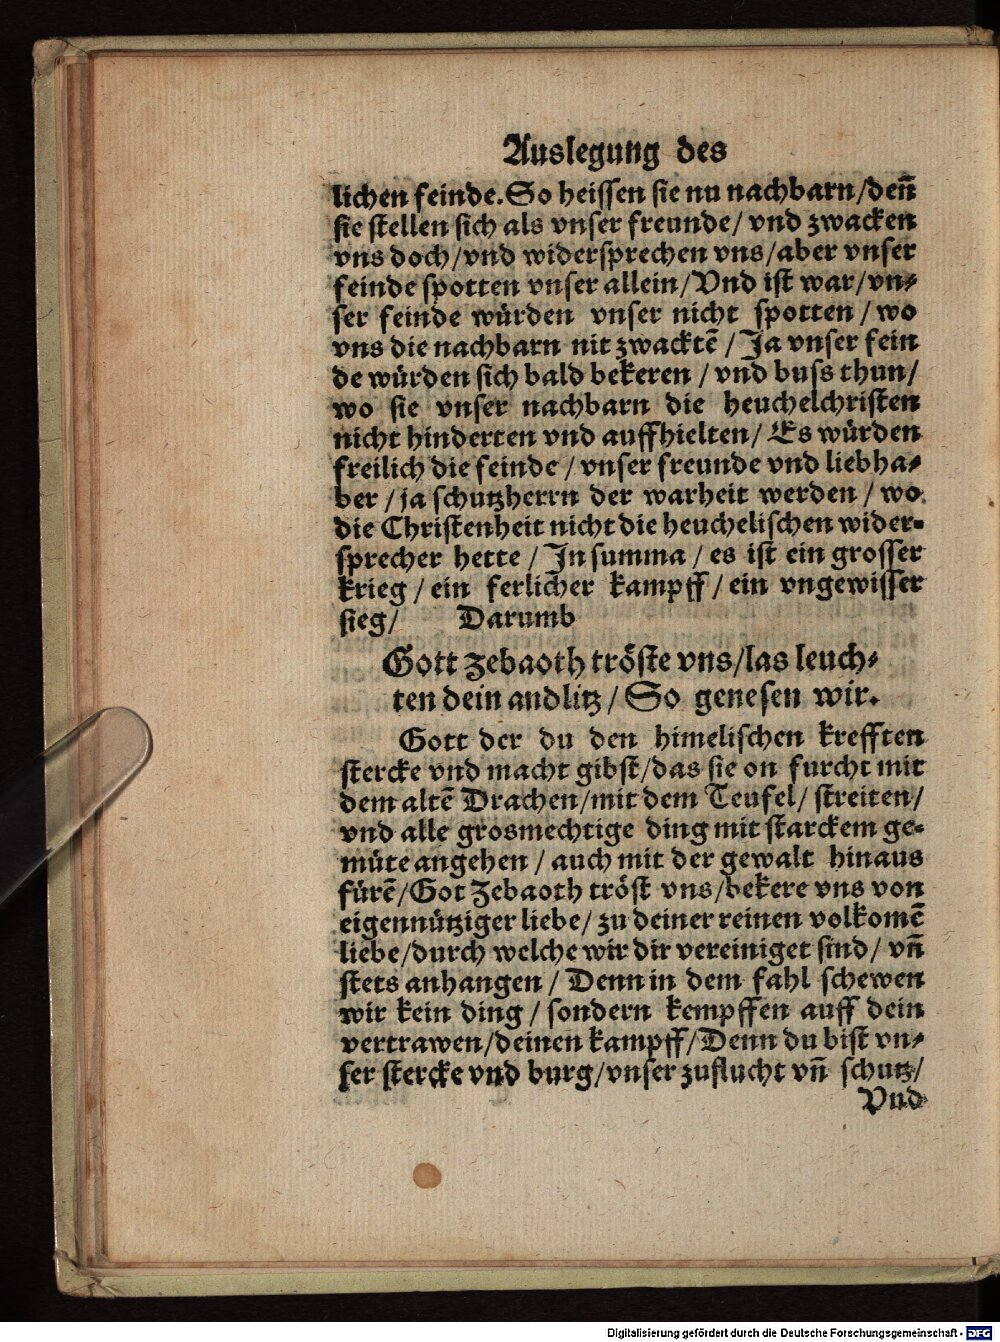 Auslegung des
lichen feinde. So heissen sie nu nachbarn/deñ
sie stellen sich als vnser freunde/ vnd zwacken
vns doch/vnd widersprechen vns/aber vnser
feinde spotten vnser allein/Vnd ist war/vn⸗
ser feinde würden vnser nicht spotten/wo
vns die nachbarn nit zwacktẽ/Ja vnser fein
de würden sich bald bekeren/vnd buss thun/
wo sie vnser nachbarn die heuchelchristen
nicht hinderten vnd auffhielten/Es würden
freilich die feinde/vnser freunde vnd liebha⸗
ber/ja schutzherrn der warheit werden/wo
die Christenheit nicht die heuchelischen wider⸗
sprecher hette/In summa/es ist ein grosser
krieg/ein ferlicher kampff/ein vngewisser
sieg/ Darumb
Gott Zebaoth tröste vns/las leuch⸗
ten dein andlitz/So genesen wir.
Gott der du den himelischen krefften
stercke vnd macht gibst/das sie on furcht mit
dem altẽ Drachen/mit dem Teufel/streiten/
vnd alle grosmechtige ding mit starckem ge⸗
müte angehen/auch mit der gewalt hinaus
fürẽ/Got Zebaoth tröst vns/bekere vns von
eigennütziger liebe/zu deiner reinen volkomẽ
liebe/durch welche wir dir vereiniget sind/vñ
stets anhangen/Denn in dem fahl schewen
wir kein ding/sondern kempffen auff dein
vertrawen/deinen kampff/Denn du bist vn⸗
ser stercke vnd burg/vnser zuflucht vñ schutz/
Vnd
Digitalisierung gefördert durch die Deutsche Forschungsgemeinschaft - DFG